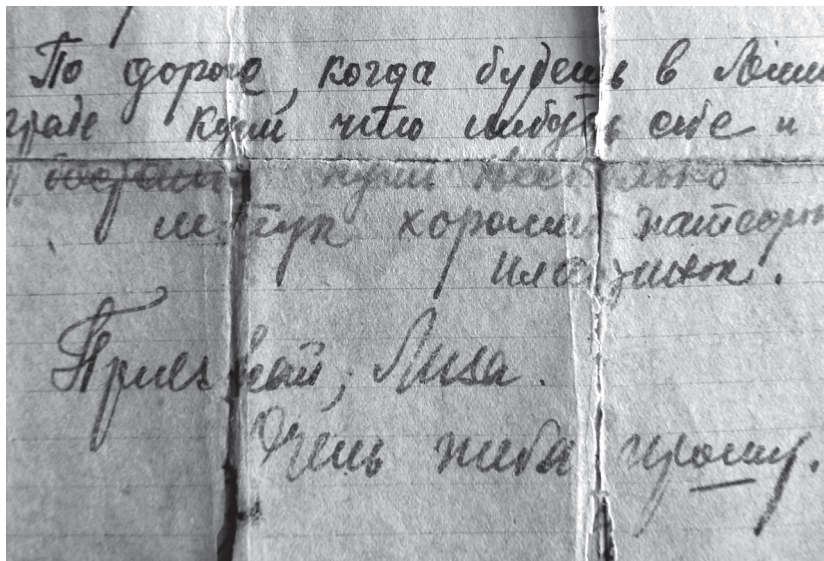 По дороге, когда будешь в Ленин
граде купи что нибудь себе и
купи несколько
штук хороших патефон
пластинок.
Приезжай, Лиза.
Очень тебя прошу.